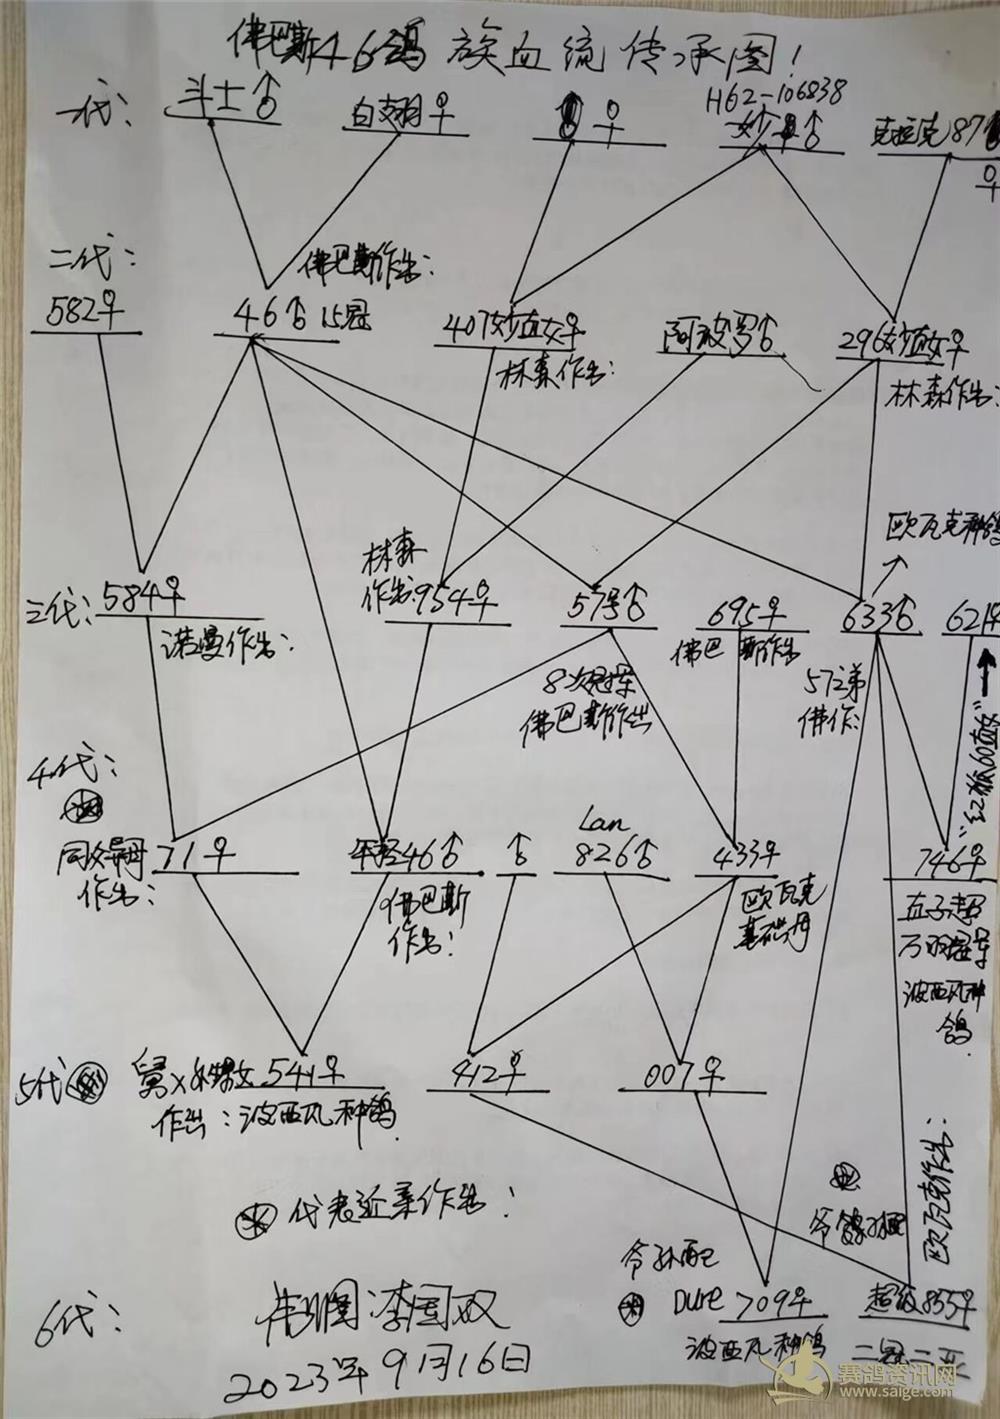 佛巴斯46鸽族血流传承图!
一代: 斗士♂ 白翅♀ ♀ H62-106838 ♂ 克拉克87 ♀
二代: 佛巴斯作出:
582♀ 46♂15冠 407妙直女♀ 阿波罗♂ 296妙直女♀
林森作出: 林森作出:
欧瓦克种鸽
三代: 584♀ 林森作出 954♀ 57号♂ 695♀ 633♂ 621♀
诺曼作出: 8次冠军 佛巴斯作出 佛巴斯作出 57之弟 佛作:
"红狐60直女"
4代:
同父异母 71♀ 年轻46♂ ♂ Lan 826♂ 433♀ 746♀
作出: 佛巴斯作出: 欧瓦克基础母 直子超
万羽冠军
波西瓦种鸽
5代 舅×外甥女 541♀ 412♀ 007♀
作出:波西瓦种鸽
代表近亲作出:
欧瓦克作出:
爷孙配
6代: Dure 709♀ 超级855♀
波西瓦种鸽 二冠二亚
李国双
2023年9月16日
赛鸽资讯网
www.saige.com